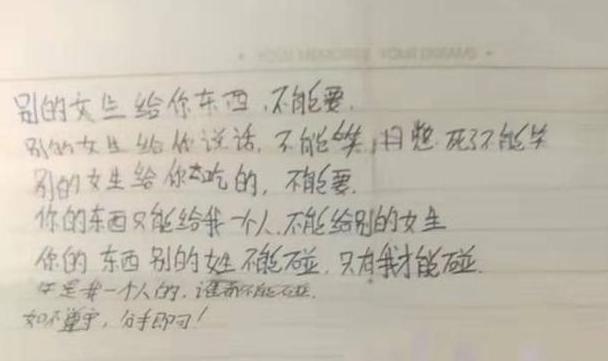 别的女生给你东西,不能要.
别的女生给你说话,不能笑,憋死了不能笑
别的女生给你吃的,不能要.
你的东西只能给我一个人,不能给别的女生
你的东西别的女生不能碰,只有我才能碰.
是我一个人的,谁都不能碰.
如不遵守,分手即可!